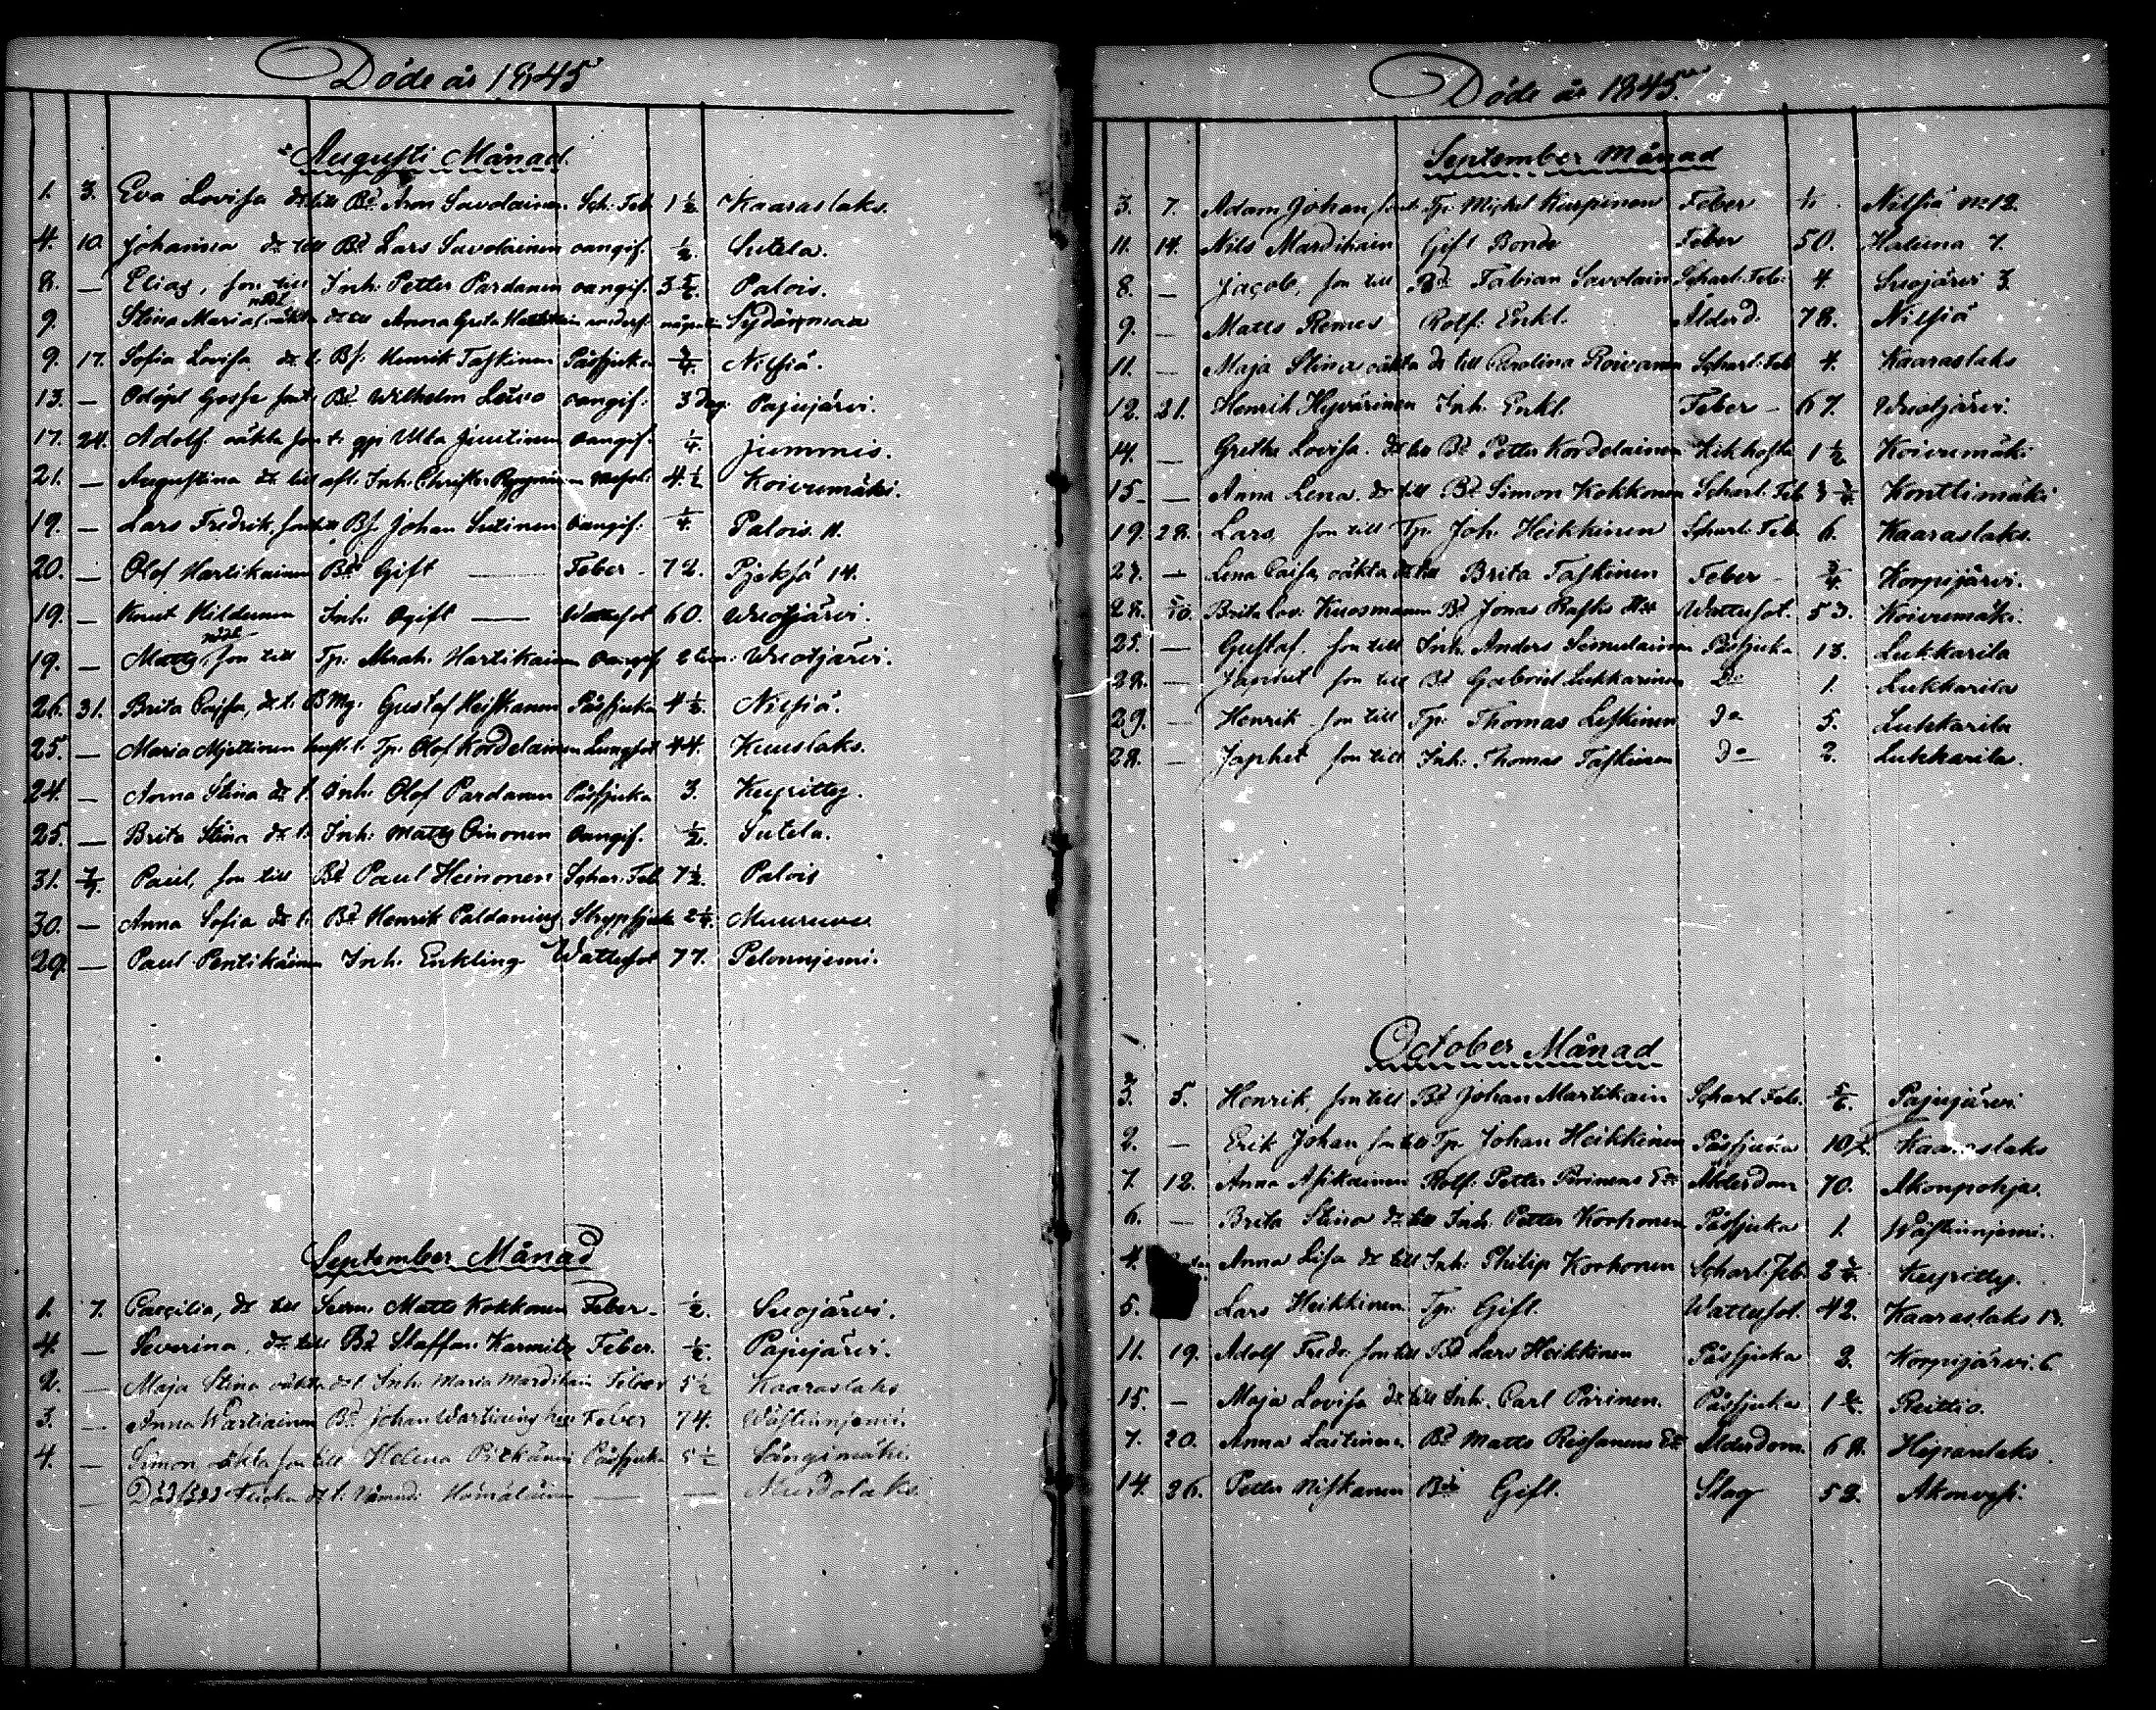 Döde år 1845
Augusti Månad
1. 3. Eva Lovisa dr till Bd. Aron Savolainen Sch: Feb 1 1/2 Kaaraslaks.
4. 10. Johanna dr till Bd Lars Savolainen oangif. 1/2. Sutela.
8. — Elias, son till Inh: Petter Pardanen oangif. Palois.
9. Stina Maria, oäkta nödt dr till Anna Greta Sydänmaa
9. 17. Sofia Lovisa. dr t. Bs. Henrik Taskinen Påssjuka 3/4. Nilsiä.
13. — Bd. Wilhelm oangif: 3 dag. Pajujärvi.
17. 24. Adolf oäkta son t. Ulla Juutinen oangif. 1/4. Jummis.
21. — Augustina dr till afl. Inh: Christer 4 1/2 Koivumäki.
19. — Lars Fredrik, son till Bs. Johan Sutinen oangif: 1/4. Palois. 11.
20. — Olof Hartikainen Bd Gift — Feber 72. Pjeksä 14.
19. — Knut Hildunen Inh: Ogift — Wattusot 60. Wuotjärvi.
19. — Matts, nödt son till Tp. Abrah. Hartikainen oangif 2 tim: Wuotjärvi.
26. 31. Brita Cajsa, dr t. BMg. Gustaf Heiskanen Påssjuka 4 1/2. Nilsiä.
25. — Maria Mjettinen hust. t. Tp. Olof Kordelainen Lungsot 44. Kuuslaks.
24. — Anna Stina dr t. Inh: Olof Pardanen Påssjuka 3. Kuyritty.
25. — Brita Stina dr t. Inh: Matts Oinonen oangif. 1/2. Sutela.
31. 7/9. Paul, son till Bd Paul Heinonen Schar. Feb 7 1/2. Palois
30. — Anna Sofia dr t. Bd Henrik Paldanius Strypsjuka 2 1/4. Muuruve.
29. — Paul Pentikäinen Inh. Enkling Wattusot 77. Pelonnjemi.
September Månad
1. 7. Caecilia, dr till Matts Kokkonen Feber 1/2. Suojärvi.
4. — Severina, dr till Bd Staffan Karmitz Feber. 1/2. Pajujärvi.
2. — Maja Stina oäkta dr t. Inh: Maria Mardikain Feber 5 1/2 Kaaraslaks
3. — Anna Wartiainen Bd. Johan Wartiains hu Feber 74. Wästinnjemi.
4. — Simon oäkta son till Helena Pitkänen Påssjuka 5 1/2 Sängimäki.
— Dödfödd dr t. Hämäläinen — — Murdolaks
Döde år 1845
September Månad
3. 7. Adam Johan, son t. Tp. Michel Karpinen Feber Nilsiä No 12.
11. 14. Nils Mardikain Gift Bonde Feber 50. Haluna 7.
8. — Jacob, son till Bd Fabian Savolain Scharl: Feb: 4. Suojärvi 3.
9. — Matts Remes Rotf: Enkl. Ålderd. 78. Nilsiä
11. — Maja Stina oäkta dr till Carolina Roivanen Scharl: Feb 4. Kaaraslaks
12. 21. Henrik Hyvärinen Inh. Enkl. Feber 67. Wuotjärvi.
14. — Greta Lovisa. dr till Bd Petter Kordelainen Kikhosta 1 1/2 Koivumäki
15. — Anna Lena. dr till Bd Simon Kokkonen Scharl: Feb 3 3/4 Konttimäki
19. 28. Lars, son till Tp. Joh. Heikkinen Scharl: Feb. 6. Kaaraslaks.
27. — Lena Caisa, oäkta dr till Brita Taskinen Feber 3/4 Korpijärvi.
28. 5/10. Brita Lov: Kuosmanen Bd Jonas Rasks Wattusot. 53. Koivumäki.
25. — Gustaf. son till Inh. Anders Simulainen Påssjuka 13. Lukkarila
28. — Japhet son till Bd Gabriel Lukkarinen Do 1. Lukkarila
29. — Henrik son till Tp: Thomas Leskinen do 5. Lukkarila
28. — Japhet son till Inh: Thomas Taskinen do 2. Lukkarila.
October Månad
3. 5. Henrik, son till Bd Johan Martikain Scharl. Feb. 5/6. Pajujärvi
2. — Erik Johan son till Tp. Johan Heikkinen Påssjuka Kaaraslaks
7. 12. Anna Asikainen Rotf. Petter Pirinens Ålderdom 70. Akonpohja.
6. — Brita Stina dr till Inh. Petter Korhonen Påssjuka 1. Wästinnjemi.
4. Anna Lisa dr till Inh: Philip Korhonen Scharl: Feb. Kuyritty.
5. Lars Heikkinen. Tp: Gift. Wattusot. 42. Kaaraslaks 13.
11. 19. Adolf Fredr. son till Bd Lars Heikkinen Påssjuka 2. Korpijärvi 6
15. — Maja Lovisa dr till Inh. Carl Pirinen. Påssjuka Reittio.
7. 20. Anna Laitinen Bd Matts Rissanens Ålderdom. 68. Hipanlaks.
14. 26. Petter Niskanen Bd Gift. Slag 52. Akonvesi.